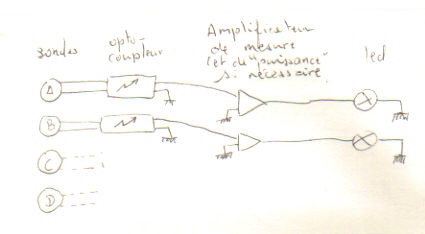 sondes
opto-
coupleur
Amplificateur
de mesure
(et de "puissance"
si nécessaire.
led
A
B
C
D